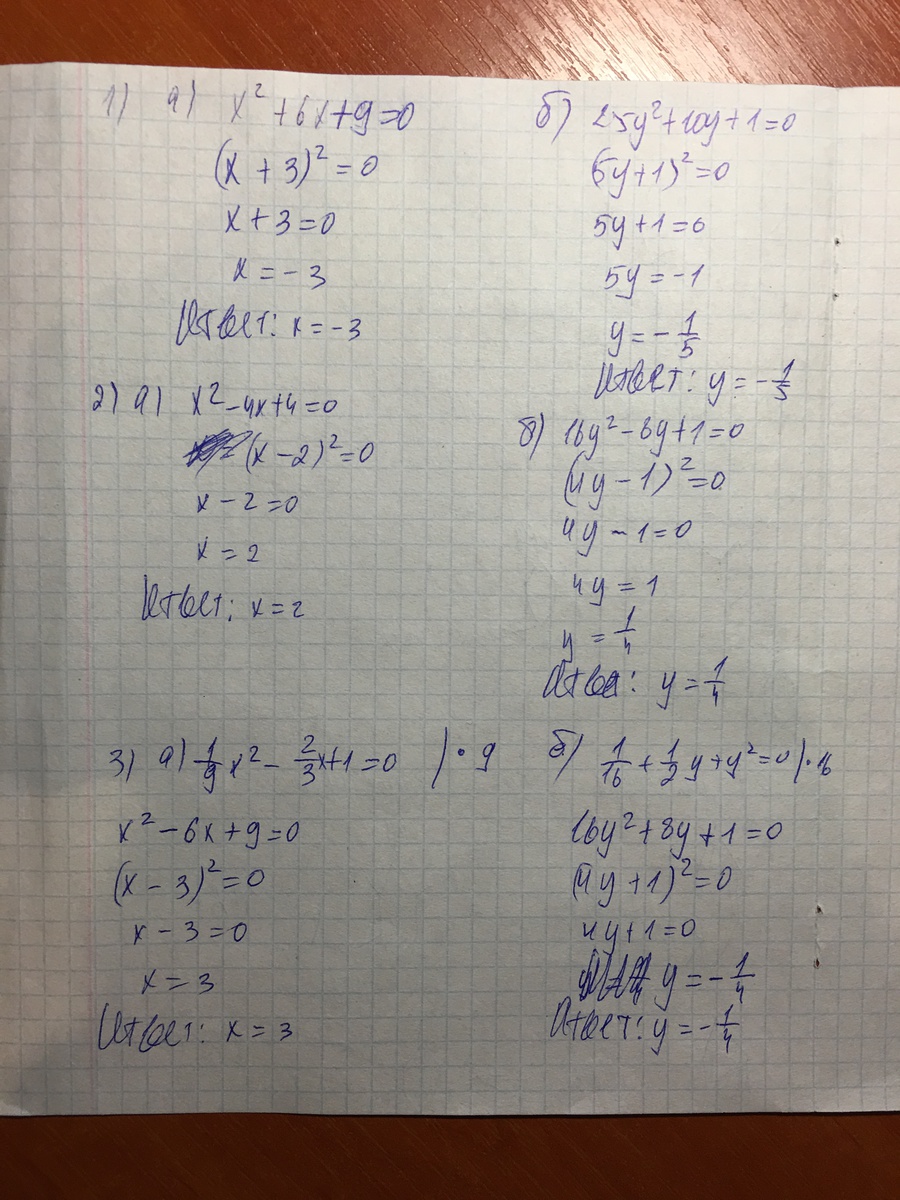 1) а) x² + 6x + 9 = 0
(x + 3)² = 0
x + 3 = 0
x = - 3
Ответ: x = - 3
б) 25y² + 10y + 1 = 0
(5y + 1)² = 0
5y + 1 = 0
5y = - 1
y = - 1/5
Ответ: y = - 1/5
2) а) x² - 4x + 4 = 0
(x - 2)² = 0
x - 2 = 0
x = 2
Ответ: x = 2
б) 16y² - 8y + 1 = 0
(4y - 1)² = 0
4y - 1 = 0
4y = 1
y = 1/4
Ответ: y = 1/4
3) а) 1/9 x² - 2/3 x + 1 = 0 | · 9
x² - 6x + 9 = 0
(x - 3)² = 0
x - 3 = 0
x = 3
Ответ: x = 3
б) 1/16 + 1/2 y + y² = 0 | · 16
16y² + 8y + 1 = 0
(4y + 1)² = 0
4y + 1 = 0
y = - 1/4
Ответ: y = - 1/4